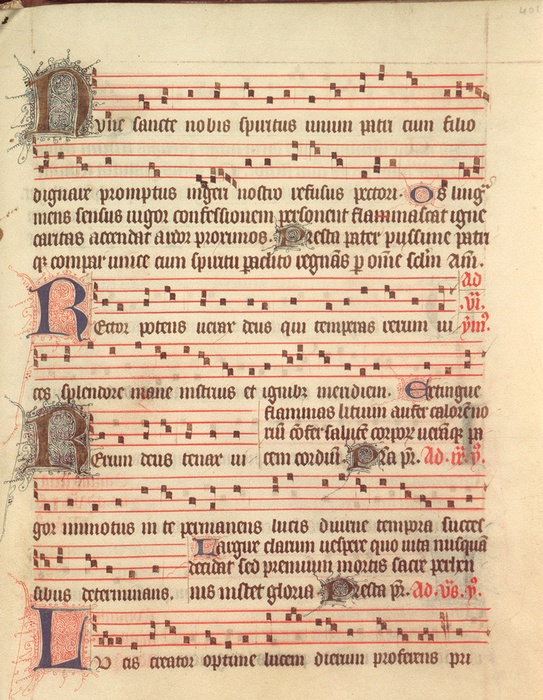 401
Nunc sancte nobis spiritus unum patri cum filio
dignare promptus ingeri nostro refusus pectori. Os ling᷑
mens sensus uigor confessionem personent flammascat igne
caritas accendat ardor proximos. Presta pater piissime patri
qꝫ compar unice cum spiritu paclito regnans ꝑ om̄e sclm̄. Am̄.
Ad
.vi.
Rector potens uerax deus qui temperas rerum ui ym̄.
ces splendore mane instruis et ignibꝫ meridiem. Extingue
flammas litium aufer calorē no
xiū cōfer salutē corpoꝝ ueraqꝫ pa
Rerum deus tenax ui cem cordiū. Pra pr̄. Ad .ix. y̅.
gor immotus in te permanens lucis diurne tempora succes
Largire clarum uespere quo uita nusquā
decidat sed premium mortis sacre perhen
sibus determinans. nis instet gloria Presta pr̄. Ad .vs̄. y̅.
Lucis creator optime lucem dierum proferens pri